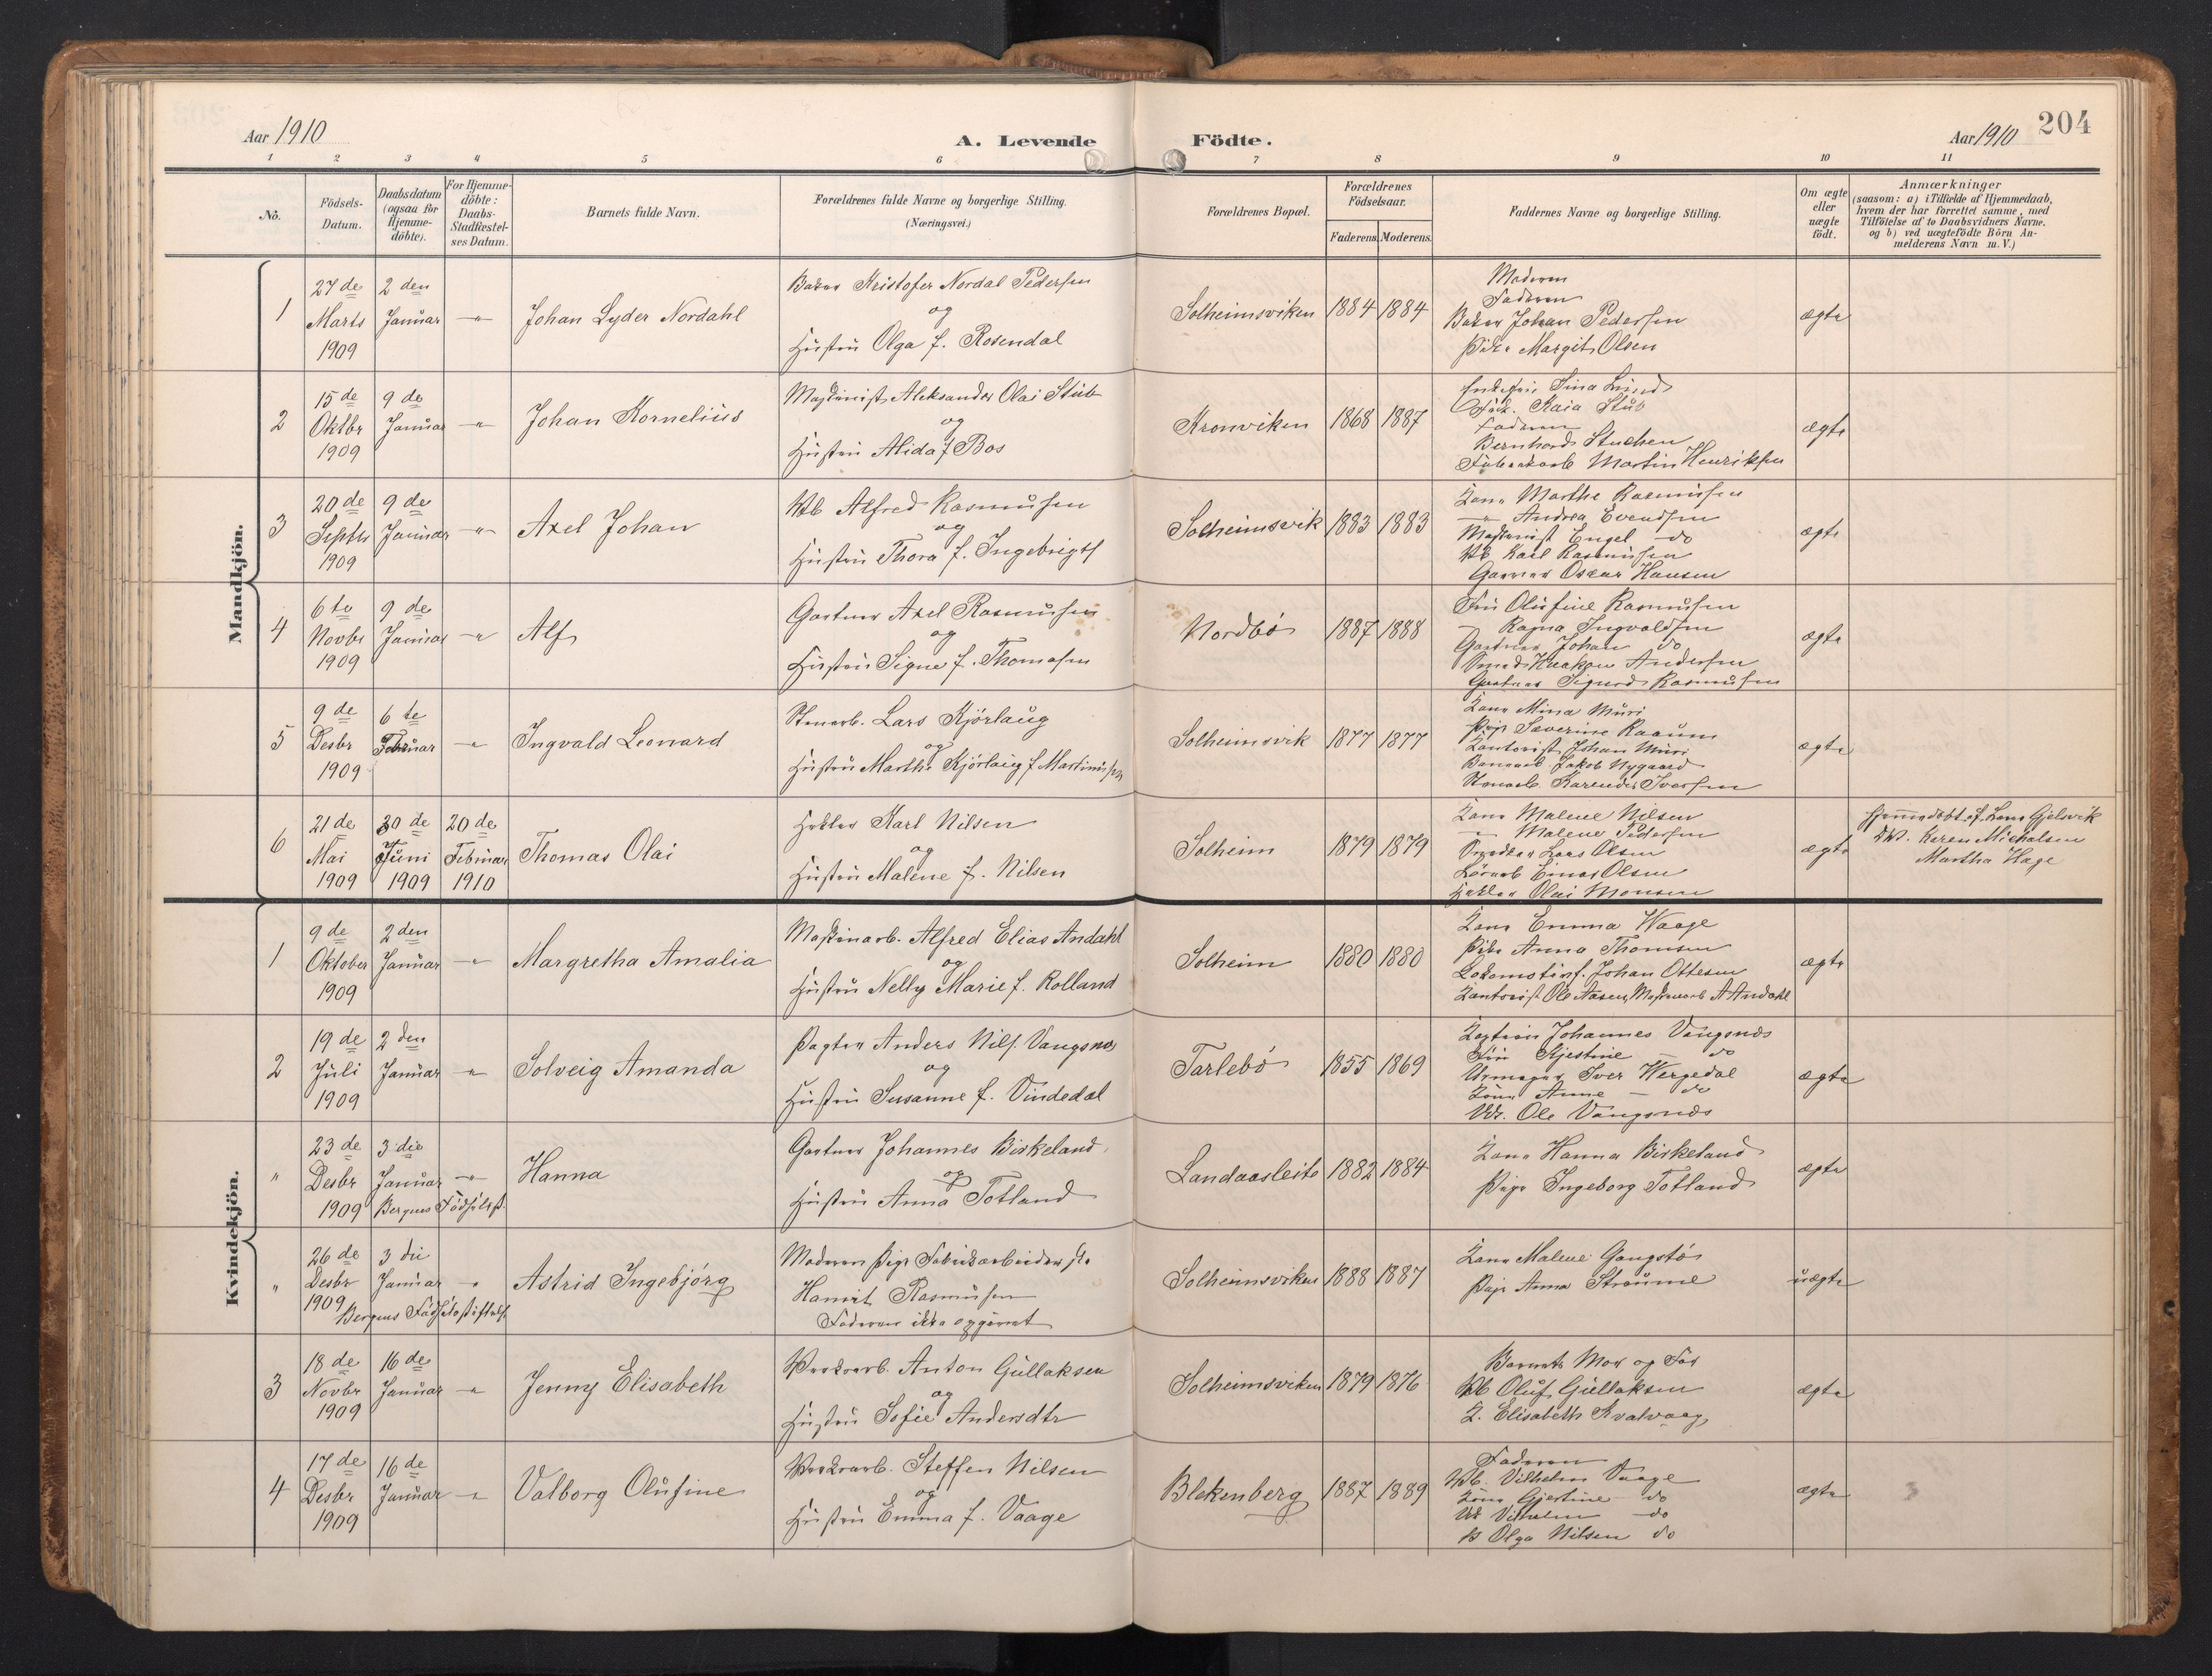 204
Aar 1910
A. Levende Födte.
Aar 1910
1 2 3 4 5 6 7 8 9 10 11
No.
Födsels-Datum.
Daabsdatum (ogsaa for Hjemme-döbte).
For Hjemme-döbte: Daabs-Stadfæstel-ses Datum.
Barnets fulde Navn.
Forældrenes fulde Navne og borgerlige Stilling.
(Næringsvei.)
Forældrenes Bopæl.
Forældrenes Födselsaar.
Faderens. Moderens.
Faddernes Navne og borgerlige Stilling.
Om ægte eller uægte födt.
Anmærkninger
(saasom: a) i Tilfælde af Hjemmedaab,
hvem der har forrettet samme, med
Tilföielse af to Daabsvidners Navne.
og b) ved uægtefödte Börn An-
melderens Navn m. V.)
Mandkjön.
1
27de Marts 1909
2den Januar
-"-
Johan Lyder Nordahl
Baker Kristofer Nordal Pedersen
og
Hustru Olga f. Rosendal
Solheimsviken
1884 1884
Moderen
Faderen
Baker Johan Pedersen
Pike Margit Olsen
ægte
2
15de Oktbr 1909
9de Januar
-"-
Johan Kornelius
Maskinist Aleksander Olai Stub
og
Hustru Alida f Bos
Kronviken
1868 1887
Enkefru Sina Lund
Frk. Kaia Stub
Faderen
Bernhard
Martin Henriksen
ægte
3
20de Septbr 1909
9de Januar
-"-
Axel Johan
Vb Alfred Rasmusen
og
Hustru Thora f. Ingebrigts
Solheimsvik
1883 1883
Kone Marthe Rasmusen
-"- Andrea Evendsen
Maskinist Engel do
Vb Karl Rasmusen
Garver Oscar Hansen
ægte
4
6te Novbr 1909
9de Januar
-"-
Alf
Gartner Axel Rasmusen
og
Hustru Signe f. Thomasen
Nordbö
1887 1888
Fru Olufine Rasmusen
- Ragna Ingvaldsen
Gartner Johan do
Smed Haakon Andersen
Gartner Sigurd Rasmusen
ægte
5
9de Desbr 1909
6te Februar
-"-
Ingvald Leonard
Stenarb. Lars Kjörlaug
og
Hustru Marthe Kjörlaug f Martinussen
Solheimsvik
1877 1877
Kone Mina Muri
Pige Severine Raaum
Kontorist Johan Muri
Jakob Nygaard
Stenarb. Iversen
ægte
6
21de Mai 1909
30de Juni 1909
20de Februar 1910
Thomas Olai
Hekler Karl Nilsen
og
Hustru Malene f. Nilsen
Solheim
1879 1879
Kone Malene Nilsen
-"- Malene Pedersen
Lars Olsen
Einar Olsen
Hekler Olai Monsen
ægte
Hjemmedöbt af Lars Gjelsvik
DW. Karen Michalsen
Martha Hage
Kvindekjön.
1
9de Oktober 1909
2den Januar
-"-
Margretha Amalia
Maskinarb. Alfred Elias Andahl
og
Hustru Nelly Marie f. Rolland
Solheim
1880 1880
Kone Emma Waage
Pike Anna Thomsen
Lokomotivf. Johan Ottesen
Kontorist Ole Aasen, Maskinarb A Andahl
ægte
2
19de Juli 1909
2den Januar
-"-
Solveig Amanda
Pagter Anders Nils. Vangsnes
og
Hustru Susanne f. Vindedal
Tarlebö
1855 1869
Kaptein Johannes Vangsnes
Fru Kjestine - do
Urmager Iver Wergedal
Kone Anne - do
Ole Vangsnes
ægte
"
23de Desbr 1909
3die Januar
-"-
Bergens Födselsst.
Hanna
Gartner Johannes Birkeland
og
Hustru Anna Totland
Landaasleite
1882 1884
Kone Hanna Birkeland
Pige Ingeborg Totland
ægte
"
26de Desbr 1909
3die Januar
"
Bergens Födselsstiftelse
Astrid Ingebjörg
Moderen Pige Fabrikarbeiderske
Rasmusen
Faderen ikke opgivet
Solheimsviken
1888 1887
Kone Malene Gangstö
Pige Anna Straume
uægte
3
18de Novbr 1909
16de Januar
-"-
Jenny Elisabeth
Værksarb. Anton Gullaksen
og
Hustru Sofie Andersdtr
Solheimsviken
1879 1876
Barnets Mor og Far
Vb Oluf Gullaksen
K. Elisabeth Kvalvaag
ægte
4
17de Desbr 1909
16de Januar
-"-
Valborg Olufine
Værksarb. Steffen Nilsen
og
Hustru Emma f. Vaage
Blekenberg
1887 1889
Faderen
Vb. Vilhelm Vaage
Kone Gjertine do
Vilhelm - do
P Olga Nilsen do
ægte